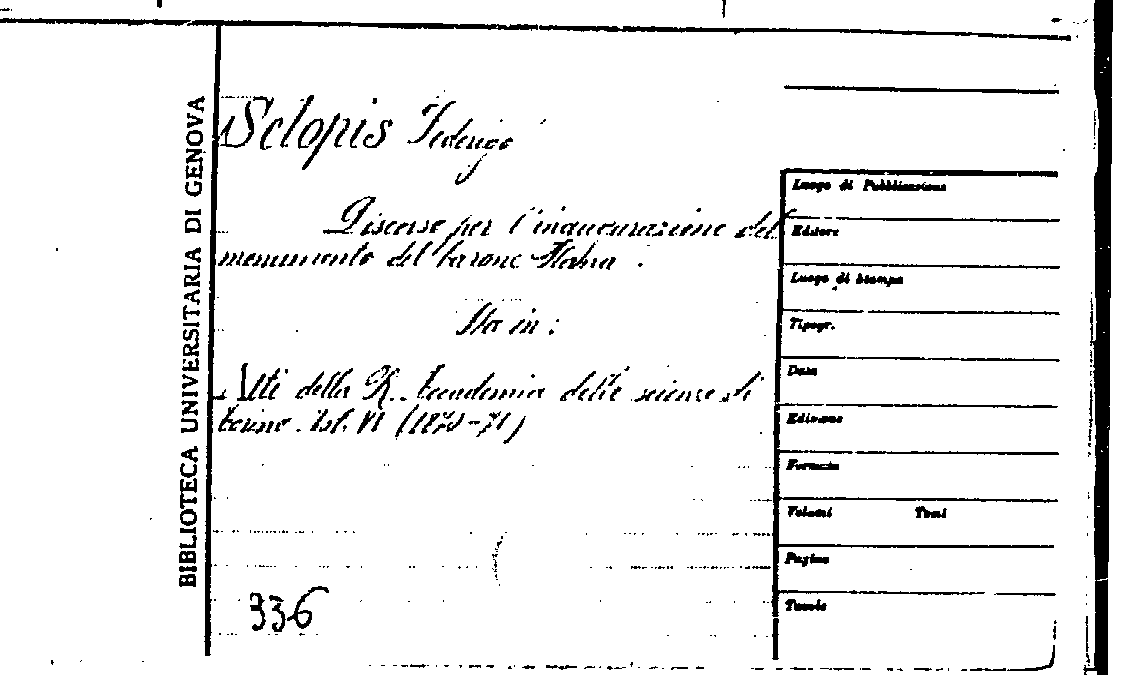 BIBLIOTECA UNIVERSITARIA DI GENOVA
Sclopis Federigo
Discorso per l'inaugurazione del
monumento del barone Plana.
Sta in:
Atti della R. Accademia delle scienze di
torino. Vol. VI (1870-71)
336
Luogo di Pubblicazione
Editore
Luogo di Stampa
Tipogr.
Data
Edizione
Formato
Volumi Tomi
Pagine
Tavole